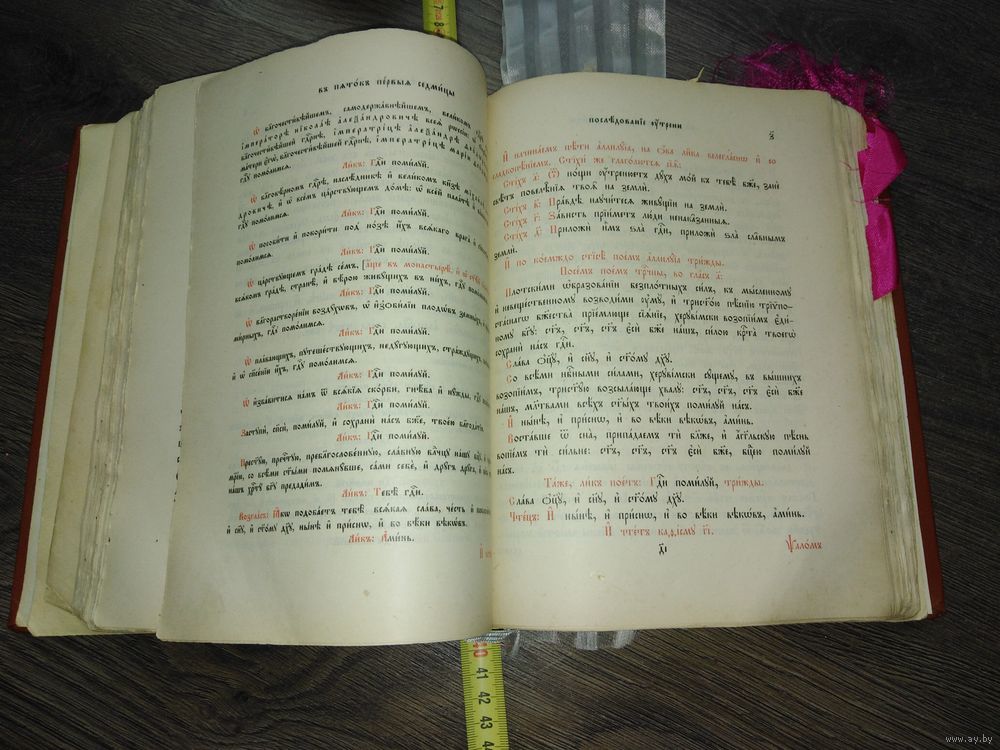 въ пѧто́къ пе́рвыѧ седми́цы
Ѡ благочести́вѣйшемъ, самодержа́внѣйшемъ, вели́комъ
імпера́торѣ нїкола́е алеѯа́ндровичѣ всеѧ̀ рѡссі́и
ма́тери є҆гѡ̀, благочести́вѣйшей гдⷭ҇рнѣ, імператри́цѣ марі́и
гдⷭ҇ꙋ помо́лимсѧ.
Ли́къ: Гдⷭ҇и поми́лꙋй.
Ѡ благовѣ́рномъ гдⷭ҇рѣ, наслѣ́дникѣ и҆ вели́комъ кнѧ́зѣ
дровичѣ, и҆ ѡ҆ всѐмъ ца́рствꙋющемъ до́мѣ: ѡ҆ все́й пала́тѣ
гдⷭ҇ꙋ помо́лимсѧ.
Ли́къ: Гдⷭ҇и поми́лꙋй.
Ѡ пособи́ти и҆ покори́ти под̾ но́зѣ и҆́хъ всѧ́каго врага̀
помо́лимсѧ.
Ли́къ: Гдⷭ҇и поми́лꙋй.
Ѡ ца́рствꙋющемъ гра́дѣ се́мъ, [а҆́ще въ монастырѣ̀,
всѧ́комъ гра́дѣ, странѣ̀, и҆ вѣ́рою живꙋ́щихъ въ ни́хъ, гдⷭ҇ꙋ
Ли́къ: Гдⷭ҇и поми́лꙋй.
Ѡ благорастворе́нїи воздꙋ́хѡвъ, ѡ҆ и҆з̾ѻби́лїи плодѡ́въ земны́хъ,
ми́рныхъ, гдⷭ҇ꙋ помо́лимсѧ.
Ли́къ: Гдⷭ҇и поми́лꙋй.
Ѡ пла́вающихъ, пꙋтеше́ствꙋющихъ, недꙋ́гꙋющихъ, стра́ждꙋщихъ,
и҆ ѡ҆ спⷭ҇е́нїи и҆́хъ, гдⷭ҇ꙋ помо́лимсѧ.
Ли́къ: Гдⷭ҇и поми́лꙋй.
Ѡ и҆зба́витисѧ на́мъ ѿ всѧ́кїѧ ско́рби, гнѣ́ва и҆ нꙋ́жды,
Ли́къ: Гдⷭ҇и поми́лꙋй.
Застꙋпѝ, сп҃сѝ, поми́лꙋй, и҆ сохранѝ на́съ бж҃е, твое́ю благода́тїю.
Ли́къ: Гдⷭ҇и поми́лꙋй.
Прест҃ꙋ́ю, пречⷭ҇тꙋю, преблагослове́ннꙋю, сла́внꙋю влⷣчцꙋ на́шꙋ
мр҃і́ю, со всѣ́ми ст҃ы́ми помѧнꙋ́вше, са́ми себѐ, и҆ дрꙋ́гъ дрꙋ́га, и҆
на́шъ хрⷭ҇тꙋ̀ бг҃ꙋ предади́мъ.
Ли́къ: Тебѣ̀ гдⷭ҇и.
Возгла́съ: Ꙗ҆́кѡ подоба́етъ тебѣ̀ всѧ́каѧ сла́ва, че́сть и҆
и҆ сн҃ꙋ, и҆ ст҃о́мꙋ дх҃ꙋ, ны́нѣ и҆ при́снѡ, и҆ во вѣ́ки вѣкѡ́въ.
Ли́къ: А҆ми́нь.
послѣ́дованїе ᲂу҆́трени
И҆ начина́емъ пѣ́ти а҆ллилꙋ́їа, на ѻ҆́ба ли́ка велегла́снѡ и҆ со
сладкопѣ́нїемъ. Стїхѝ же глаго́лютсѧ
Сті́хъ а҃: Ѿ но́щи ᲂу҆́тренюетъ дꙋ́хъ мо́й къ тебѣ̀ бж҃е, занѐ
свѣ́тъ повелѣ̑нїѧ твоѧ̑ на землѝ.
Сті́хъ в҃: Пра́вдѣ наꙋчи́тесѧ живꙋ́щїи на землѝ.
Сті́хъ г҃: За́висть прїи́метъ лю́ди ненака̑занныѧ.
Сті́хъ д҃: Приложѝ и҆̀мъ ѕла̑ гдⷭ҇и, приложѝ ѕла̑ сла̑внымъ
землѝ.
И҆ по коемꙋ́ждо стїсѣ̀ пое́мъ а҆ллилꙋ́їа три́жды.
Посе́мъ пое́мъ трⷪ҇чны, во гла́съ а҃:
Плотски́ми ѡ҆бразова́нїи безпло́тныхъ си́лъ, къ мы́сленномꙋ
и҆ невеще́ственномꙋ возводи́ми ᲂу҆мꙋ̀, и҆ трист҃о́ю пѣ́снїю трїѵпо-
ста́снагѡ бж҃ества̀ прїе́млюще сїѧ́нїе, херꙋві́мски возопїи́мъ є҆ди́-
номꙋ бг҃ꙋ: ст҃ъ, ст҃ъ, ст҃ъ є҆сѝ бж҃е на́шъ, си́лою крⷭ҇та̀ твоегѡ̀
сохранѝ на́съ гдⷭ҇и.
Сла́ва ѻ҆ц҃ꙋ̀, и҆ сн҃ꙋ, и҆ ст҃о́мꙋ дх҃ꙋ.
Со всѣ́ми нбⷭ҇ными си́лами, херꙋві́мски сꙋ́щемꙋ, въ вы́шнихъ
возопїи́мъ, трист҃ꙋ́ю возсыла́юще хвалꙋ̀: ст҃ъ, ст҃ъ, ст҃ъ є҆сѝ бж҃е
на́шъ, мл҃твами всѣ́хъ ст҃ы́хъ твои́хъ поми́лꙋй на́съ.
И҆ ны́нѣ, и҆ при́снѡ, и҆ во вѣ́ки вѣкѡ́въ, а҆ми́нь.
Воста́вше ѿ сна̀, припа́даемъ тѝ бл҃же, и҆ а҆́гг҃льскꙋю пѣ́снь
вопїе́мъ тѝ си́льне: ст҃ъ, ст҃ъ, ст҃ъ є҆сѝ бж҃е, бцⷣею поми́лꙋй
на́съ.
Та́же, ли́къ пое́тъ: Гдⷭ҇и поми́лꙋй, три́жды.
Сла́ва ѻ҆ц҃ꙋ̀, и҆ сн҃ꙋ, и҆ ст҃о́мꙋ дх҃ꙋ.
Чте́цъ: И҆ ны́нѣ, и҆ при́снѡ, и҆ во вѣ́ки вѣкѡ́въ, а҆ми́нь.
И҆ чте́тъ каѳі́смꙋ гі҃.
Ѱало́мъ
7
8
40
41
42
43
44
www.ay.by